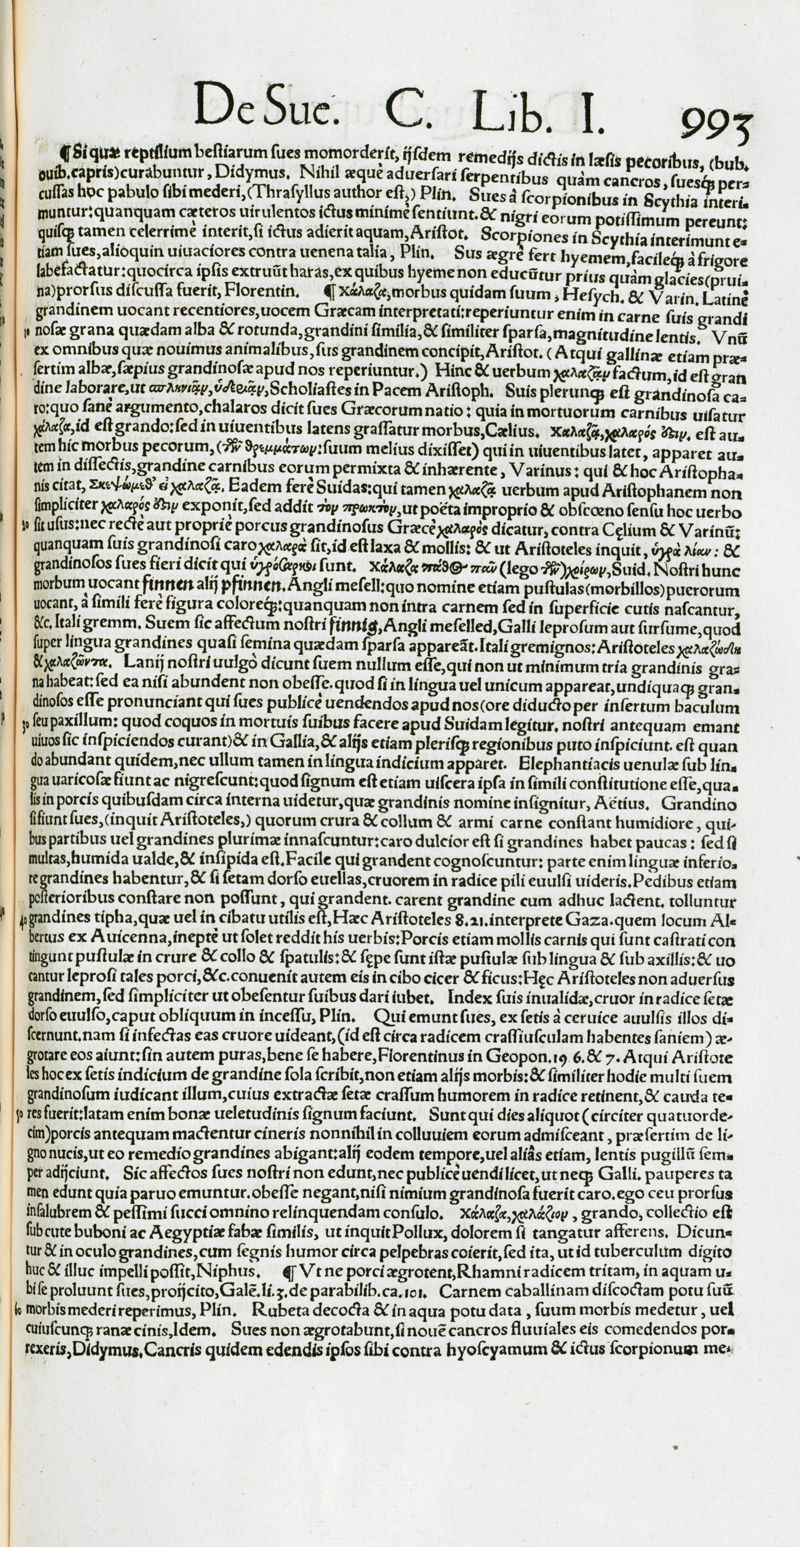 De Sue. C. Lib. I. 993
¶ Si quæ reptilium bestiarum sues momorderit, ijsdem remedijs dictis in læsis pecoribus, (bub.
ouib. capris) curabuntur, Didymus. Nihil æquè aduersari serpentibus quàm cancros, suesq́; per
cussas hoc pabulo sibi mederi, (Thrasyllus author est,) Plin. Sues à scorpionibus in Scythia interi-
muntur: quanquam cæteros uirulentos ictus minimè sentiunt. & nigri eorum potissimum pereunt:
quisq; tamen celerrimè interit, si ictus adierit aquam, Aristot. Scorpiones in Scythia interimunt e-
tiam sues, alioquin uiuaciores contra uenena talia, Plin. Sus ægrè fert hyemem, facileq́; à frigore
labefactatur: quocirca ipsis extruũt haras, ex quibus hyeme non educũtur prius quàm glacies (prui
na) prorsus discussa fuerit, Florentin. ¶ Χάλαζα, morbus quidam suum, Hesych. & Varin. Latinè
grandinem uocant recentiores, uocem Græcam interpretati: reperiuntur enim in carne suis grandi
nosæ grana quædam alba & rotunda, grandini similia, & similiter sparsa, magnitudine lentis. Vnũ
ex omnibus quæ nouimus animalibus, sus grandinem concipit, Aristot. (Atqui gallinæ etiam præ-
sertim albæ, sæpius grandinosæ apud nos reperiuntur.) Hinc & uerbum χαλαζᾶν factum, id est gran
dine laborare, ut σπληνιᾶν, ὑδεριᾶν, Scholiastes in Pacem Aristoph. Suis plerunq; est grandinosa ca-
ro: quo sanè argumento, chalaros dicit sues Græcorum natio: quia in mortuorum carnibus uisatur
χάλαζα, id est grando: sed in uiuentibus latens grassatur morbus, Cælius. Χαλαζᾷ, χαλαρός ἐστιν. est au-
tem hic morbus pecorum, (τῶν θρεμμάτων: suum melius dixisset) qui in uiuentibus latet, apparet au-
tem in dissectis, grandine carnibus eorum permixta & inhærente, Varinus: qui & hoc Aristopha-
nis citat, Σκεψώμεθ᾽ εἰ χαλαζᾷ. Eadem ferè Suidas: qui tamen χαλαζᾷ uerbum apud Aristophanem non
simpliciter χαλαρός ἐστιν exponit, sed addit τὸν πρωκτὸν, ut poëta improprio & obscœno sensu hoc uerbo
20 sit usus: nec rectè aut propriè porcus grandinosus Græcè χαλαρὸς dicatur, contra Cęlium & Varinũ:
quanquam suis grandinosi caro χαλαρὰ sit, id est laxa & mollis: & ut Aristoteles inquit, ὑγρὰ λίαν: &
grandinosos sues fieri dicit qui ὑγρόσαρκοι sunt. Χάλαζα πάθος τῶν (lego τῶν) χοίρων, Suid. Nostri hunc
morbum uocant finnen alij pfinnen. Angli mesell: quo nomine etiam pustulas (morbillos) puerorum
uocant, à simili ferè figura coloreq́;: quanquam non intra carnem sed in superficie cutis nascantur,
&c. Itali gremm. Suem sic affectum nostri finnig, Angli meselled, Galli leprosum aut sursume, quod
super lingua grandines quasi semina quædam sparsa appareāt. Itali gremignos: Aristoteles χαλαζώδη
& χαλαζῶντα. Lanij nostri uulgò dicunt suem nullum esse, qui non ut minimum tria grandinis gra-
na habeat: sed ea nisi abundent non obesse. quod si in lingua uel unicum appareat, undiquaq; gran-
dinosos esse pronunciant qui sues publicè uendendos apud nos (ore diducto per insertum baculum
30 seu paxillum: quod coquos in mortuis suibus facere apud Suidam legitur. nostri antequam emant
uiuos sic inspiciendos curant) & in Gallia, & alijs etiam plerisq; regionibus puto inspiciunt. est quan
do abundant quidem, nec ullum tamen in lingua indicium apparet. Elephantiacis uenulæ sub lin-
gua uaricosæ fiunt ac nigrescunt: quod signum est etiam uiscera ipsa in simili constitutione esse, qua-
lis in porcis quibusdam circa interna uidetur, quæ grandinis nomine insignitur, Aëtius. Grandino
si fiunt sues, (inquit Aristoteles,) quorum crura & collum & armi carne constant humidiore, qui-
bus partibus uel grandines plurimæ innascuntur: caro dulcior est si grandines habet paucas: sed si
multas, humida ualde, & insipida est, Facile qui grandent cognoscuntur: parte enim linguæ inferio-
re grandines habentur, & si setam dorso euellas, cruorem in radice pili euulsi uideris. Pedibus etiam
posterioribus constare non possunt, qui grandent. carent grandine cum adhuc lactent. tolluntur
40 grandines tipha, quæ uel in cibatu utilis est, Hæc Aristoteles 8.21. interprete Gaza. quem locum Al-
bertus ex Auicenna, ineptè ut solet reddit his uerbis: Porcis etiam mollis carnis qui sunt castrati con
tingunt pustulæ in crure & collo & spatulis: & sępe sunt istæ pustulæ sub lingua & sub axillis: & uo
cantur leprosi tales porci, &c. conuenit autem eis in cibo cicer & ficus: Hęc Aristoteles non aduersus
grandinem, sed simpliciter ut obesentur suibus dari iubet. Index suis inualidæ, cruor in radice setæ
dorso euulso, caput obliquum in incessu, Plin. Qui emunt sues, ex setis à ceruice auulsis illos di-
scernunt. nam si infectas eas cruore uideant, (id est circa radicem crassiusculam habentes saniem) æ-
grotare eos aiunt: sin autem puras, bene se habere, Florentinus in Geopon. 19 6. & 7. Atqui Aristote
les hoc ex setis indicium de grandine sola scribit, non etiam alijs morbis: & similiter hodie multi suem
grandinosum iudicant illum, cuius extractæ setæ crassum humorem in radice retinent, & cauda te-
50 res fuerit: latam enim bonæ ueletudinis signum faciunt. Sunt qui dies aliquot (circiter quatuorde-
cim) porcis antequam mactentur cineris nonnihil in colluuiem eorum admisceant, præsertim de li-
gno nucis, ut eo remedio grandines abigant: alij eodem tempore, uel aliâs etiam, lentis pugillũ sem-
per adijciunt. Sic affectos sues nostri non edunt, nec publicè uendi licet, ut neq; Galli. pauperes ta
men edunt quia paruo emuntur. obesse negant, nisi nimium grandinosa fuerit caro. ego ceu prorsus
insalubrem & pessimi succi omnino relinquendam consulo. Χάλαζα, χαλάζιον, grando, collectio est
sub cute buboni ac Aegyptiæ fabæ similis, ut inquit Pollux, dolorem si tangatur afferens. Dicun-
tur & in oculo grandines, cum segnis humor circa pelpebras coierit, sed ita, ut id tuberculum digito
huc & illuc impelli possit, Niphus. ¶ Vt ne porci ægrotent, Rhamni radicem tritam, in aquam u-
bi se proluunt sues, proijcito, Galē. li. 3. de parabilib. ca. 101. Carnem caballinam discoctam potu suũ
60 morbis mederi reperimus, Plin. Rubeta decocta & in aqua potu data, suum morbis medetur, uel
cuiuscunq; ranæ cinis, Idem. Sues non ægrotabunt, si nouē cancros fluuiales eis comedendos por-
rexeris, Didymus. Cancris quidem edendis ipsos sibi contra hyoscyamum & ictus scorpionum me-